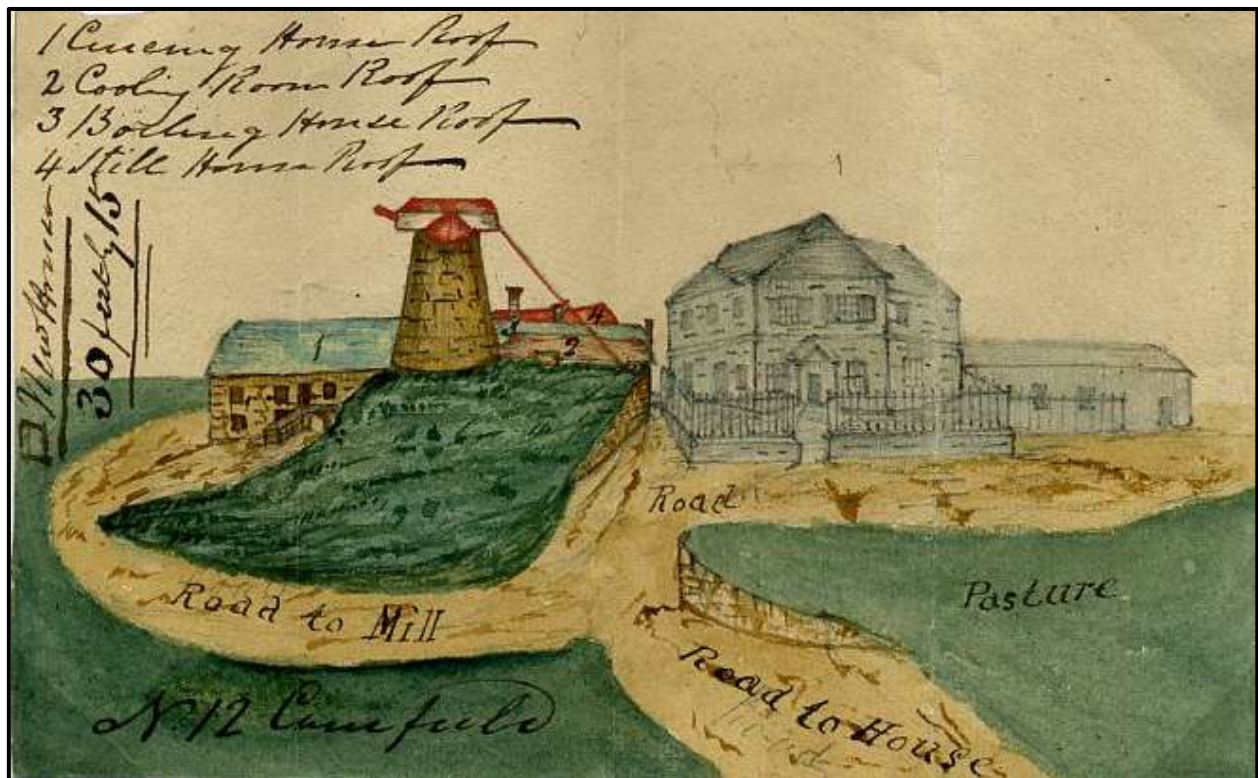 1 Cureing House Roof
2 Cooling Room Roof
3 Boiling House Roof
4 Still House Roof
30 feet by 15
1
3
4
2
Road
Pasture
Road to Mill
Road to House
N. 12 Canefield